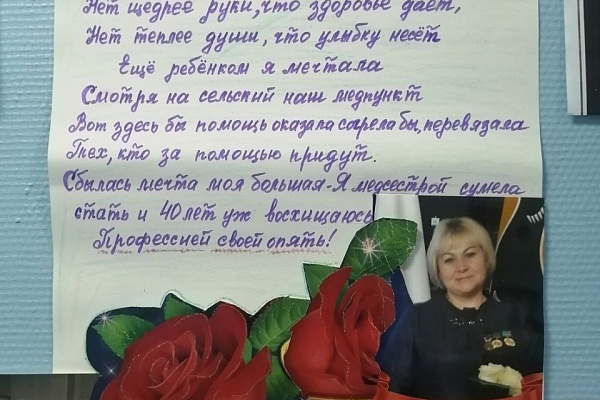 Нет щедрее руки, что здоровье даёт,
Нет теплее души, что улыбку несёт
Ещё ребёнком я мечтала
Смотря на сельский наш медпункт
Вот здесь бы помощь оказала согрела бы, перевязала
Тех, кто за помощью придут.
Сбылась мечта моя большая - Я медсестрой сумела
стать и 40 лет уж восхищаюсь
Профессией своей опять!